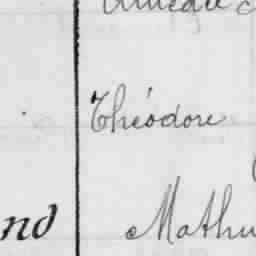 Théodore
nd Mathu